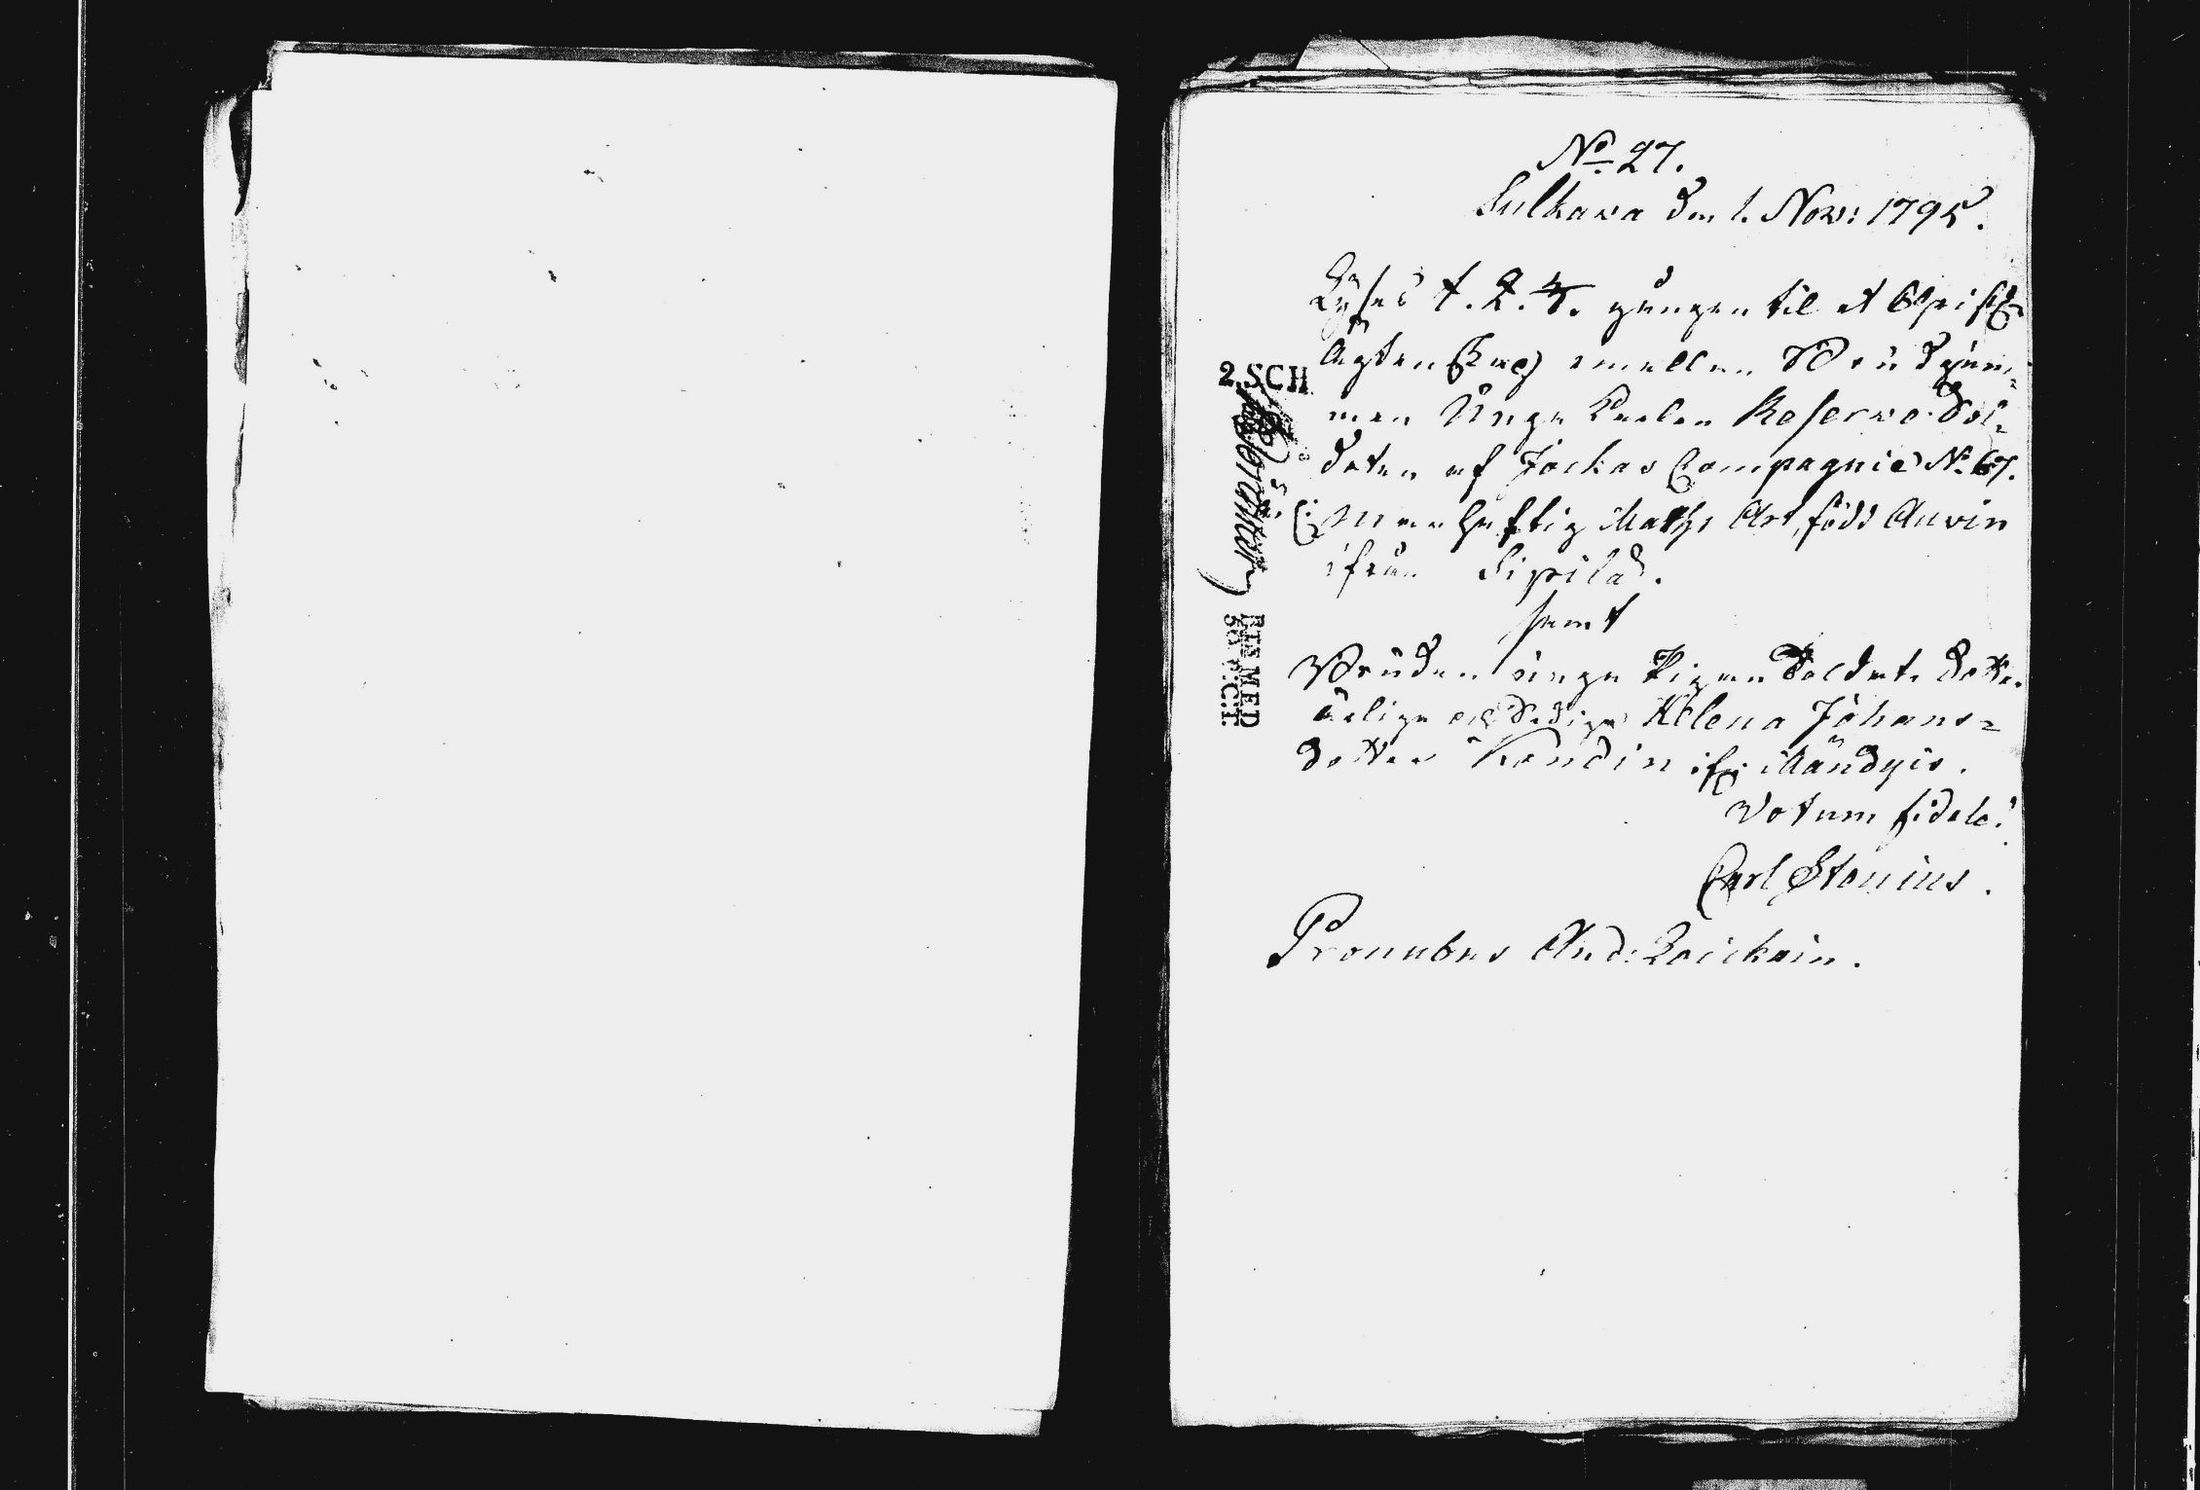 No 27.
Sulkava den 1. Nov: 1795.
Lyses 1. 2. 3. gången til et Christl.
Ägtenskap emellan Brudgum-
men Unge Karlen Reserve Sol-
daten af Jockas Compagnie No 67.
Manhaftig Maths Art, född Auvin
ifrån Sipilä.
samt
Bruden unga Pigan Soldats dottr.
ärliga och Sediga Helena Johans=
dotter Kondin ifr: Mändyis.
Votum fidele!
Carl Stenius.
Pronubus And: Loickain.
2 SCH
MED